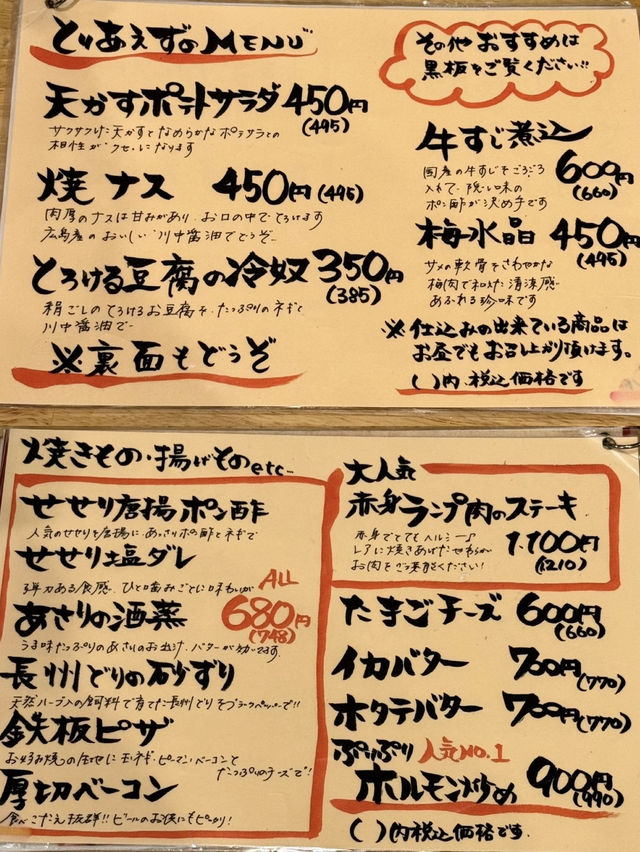 とりあえずのMENU
その他おすすめは
黒板をご覧ください!!
天かすポテトサラダ 450円
(495)
サクサクした天かすとなめらかなポテサラとの
相性がクセになります
焼ナス 450円(495)
肉厚のナスは甘みがあり、お口の中でとろけます
広島産のおいしい川中醤油でどうぞ
とろける豆腐の冷奴 350円
(385)
絹ごしのとろけるお豆腐を、たっぷりのネギと
川中醤油で
※裏面もどうぞ
牛すじ煮込
600円
(660)
国産の牛すじをごろごろ
入れて、隠し味の
ポン酢が決め手です
梅水晶 450円
(495)
サメの軟骨をさわやかな
梅肉で和えた清涼感
あふれる珍味です
※仕込みの出来ている商品は
お昼でもお召し上り頂けます。
( )内税込価格です
焼きもの・揚げものetc
せせり唐揚ポン酢
人気のせせりを唐揚に、あっさりポン酢とネギで
せせり塩ダレ
弾力ある食感、ひと噛みごとに味わいが
あさりの酒蒸
ALL
680円
(748)
うま味たっぷりのあさりのお出汁、バターが効いてます
長州どりの砂ずり
天然ハーブ入の飼料で育てた長州どりをブラックペッパーで!!
鉄板ピザ
お好み焼の生地に玉ネギ・ピーマン・ベーコンと
たっぷりのチーズで!
厚切ベーコン
食べごたえ抜群!!ビールのお供にもピッタリ!
大人気
赤身ランプ肉のステーキ
赤身でとてもヘルシー♪
レアに焼きあげたやわらか
お肉をご堪能ください!
1.100円
(1210)
たまごチーズ 600円
(660)
イカバター 700円(770)
ホタテバター 700円(770)
ぷりぷり 人気NO.1
ホルモン炒め 900円
(990)
( )内税込価格です.